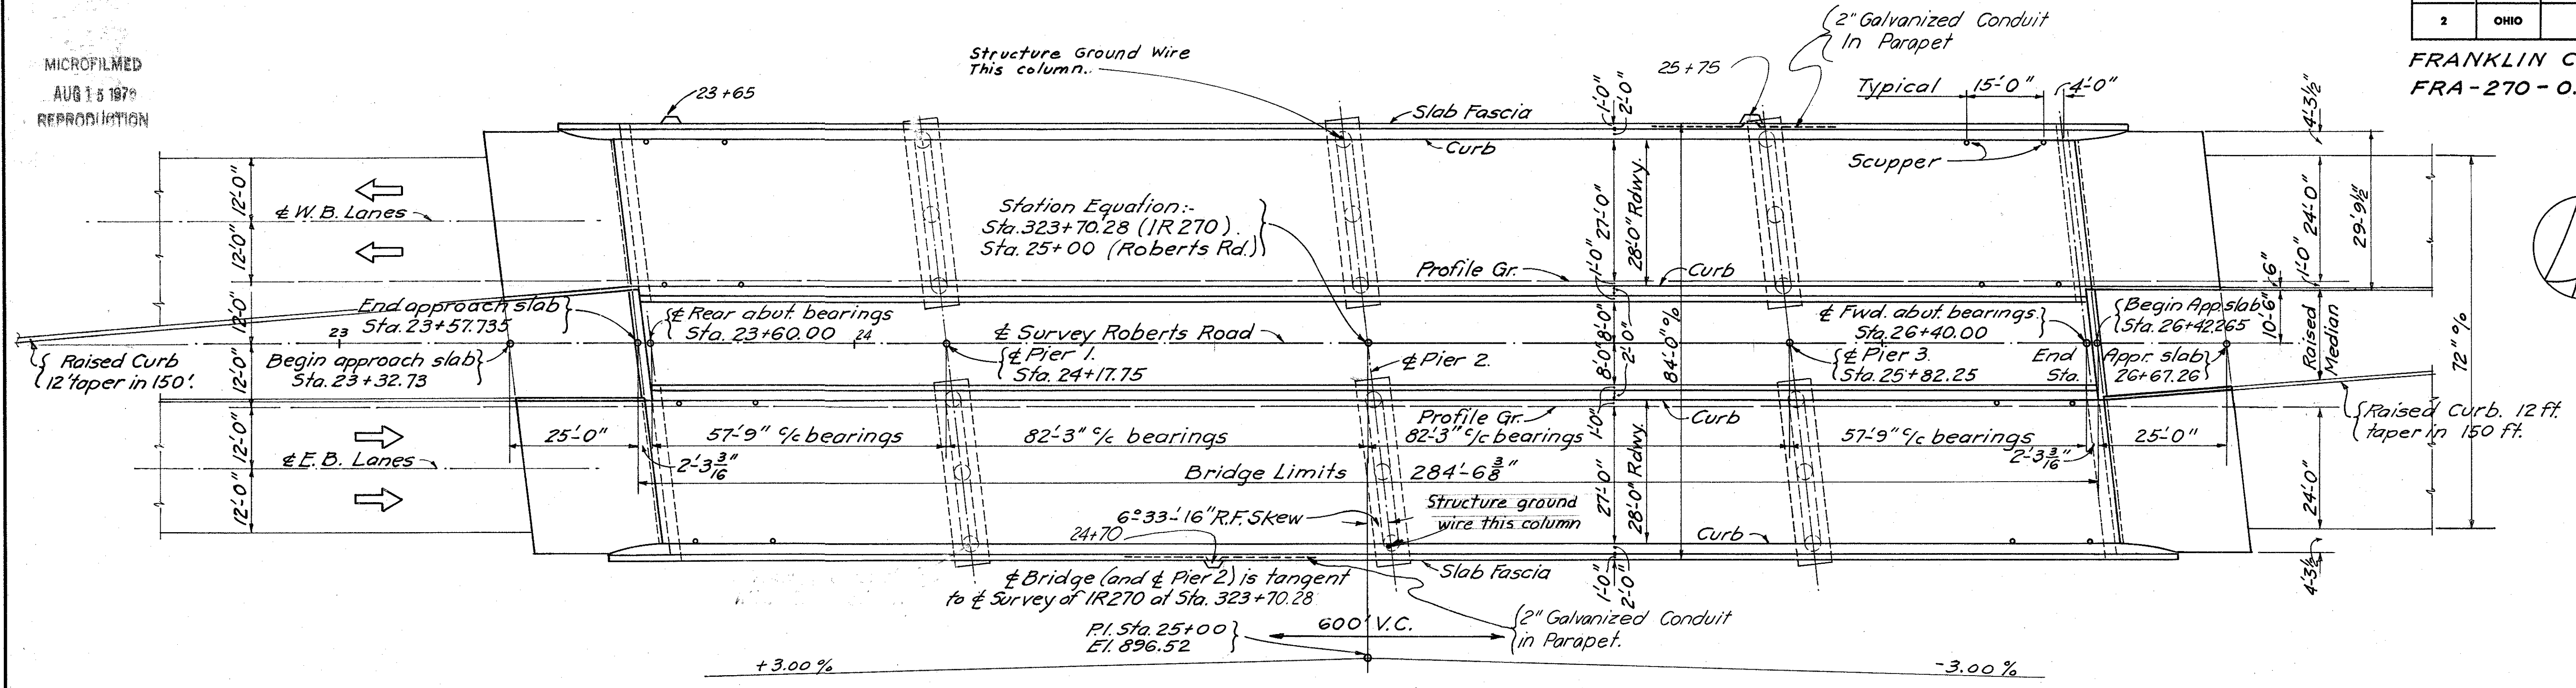 MICROFILMED
AUG 15 1979
REPRODUCTION
2 OHIO
FRANKLIN C
FRA-270-0.
23+65
Structure Ground Wire
This column.
2" Galvanized Conduit
In Parapet
25+75
Typical 15'-0" 4'-0"
Slab Fascia
Curb
Scupper
1'-0"
2'-0"
4'-3½"
12'-0"
12'-0"
12'-0"
12'-0"
12'-0"
12'-0"
℄ W.B. Lanes
Station Equation:-
Sta. 323+70.28 (IR270).
Sta. 25+00 (Roberts Rd.)
27'-0"
28'-0" Rdwy.
1'-0"
24'-0"
29'-9½"
Profile Gr.
Curb
1'-0"
6"
End approach slab
Sta. 23+57.735
℄ Rear abut. bearings
Sta. 23+60.00
23
24
℄ Survey Roberts Road
8'-0"
8'-0"
2'-0"
84'-0" o/o
℄ Fwd. abut. bearings
Sta. 26+40.00
Begin App. slab
Sta. 26+42.265
10'-6"
Raised
Median
72" o/o
Raised Curb
12' taper in 150'.
Begin approach slab
Sta. 23+32.73
℄ Pier 1.
Sta. 24+17.75
℄ Pier 2.
℄ Pier 3.
Sta. 25+82.25
End Appr. slab
Sta. 26+67.26
Profile Gr.
Curb
1'-0"
Raised Curb. 12 ft.
taper in 150 ft.
25'-0"
57'-9" c/c bearings
82'-3" c/c bearings
82'-3" c/c bearings
57'-9" c/c bearings
25'-0"
℄ E.B. Lanes
2'-3 3/16"
Bridge Limits 284'-6 3/8"
2'-3 3/16"
27'-0"
28'-0" Rdwy.
24'-0"
6°-33'-16" R.F. Skew
Structure ground
wire this column
24+70
Curb
Slab Fascia
1'-0"
2'-0"
4'-3½"
℄ Bridge (and ℄ Pier 2) is tangent
to ℄ Survey of IR270 at Sta. 323+70.28
2" Galvanized Conduit
in Parapet.
P.I. Sta. 25+00
El. 896.52
600' V.C.
+3.00%
-3.00%